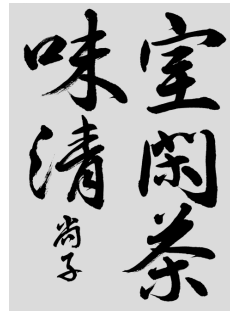 室閑茶
味清
尚子